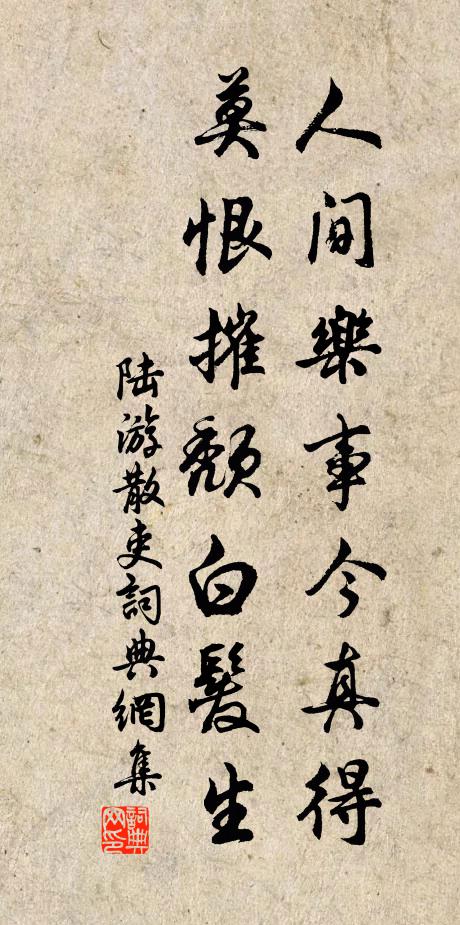 人間樂事今真得
莫恨摧頹白髮生
陸游散吏詞典網集
詞典网印